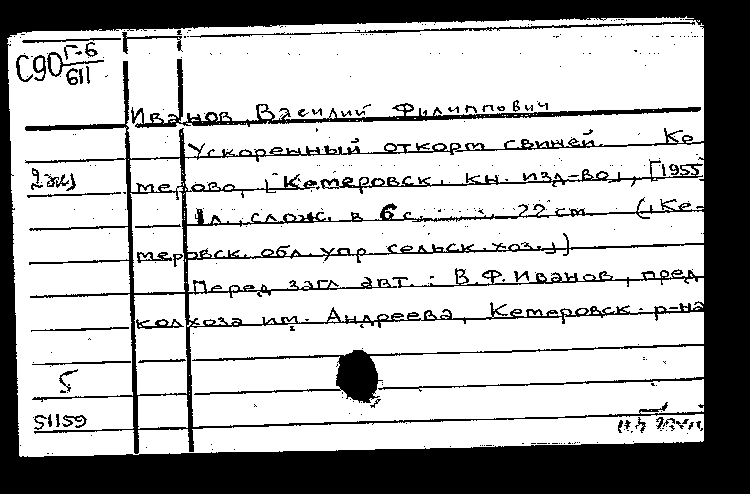 С90 Г-6/611
Иванов, Василий Филиппович
Ускоренный откорм свиней. Ке-
2 экз
мерово, [Кемеровск. кн. изд-во], [1955
1 л., слож. в 6 с. 22 см. ([Ке-
меровск. обл. упр. сельск. хоз.])
Перед загл. авт.: В.Ф. Иванов, пред.
колхоза им. Андреева, Кемеровск. р-на
5
51159